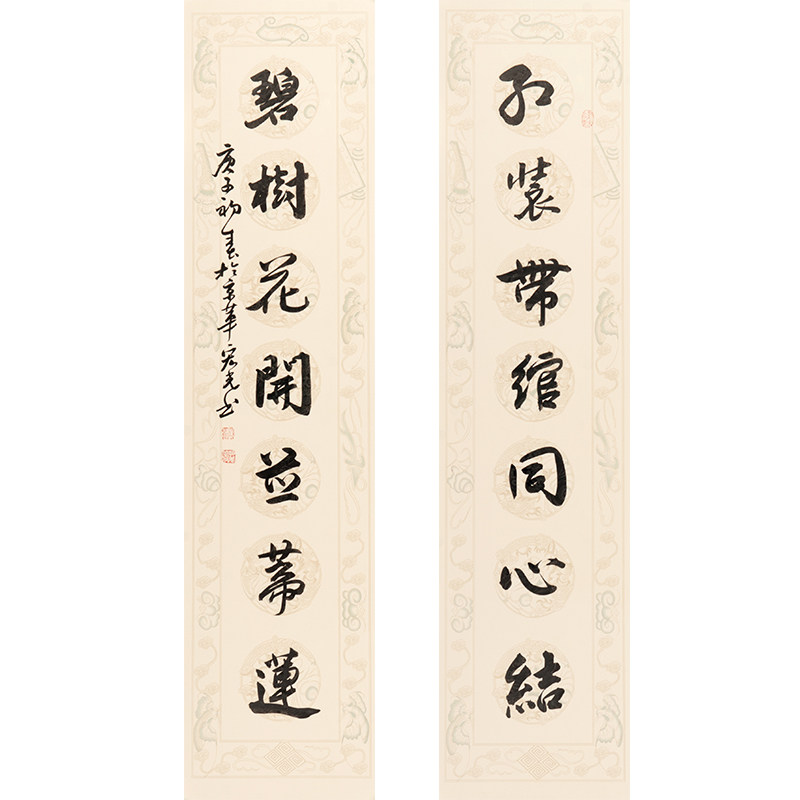 红裝帶綰同心結
碧樹花開並蒂蓮
庚子初春於京華宏光书